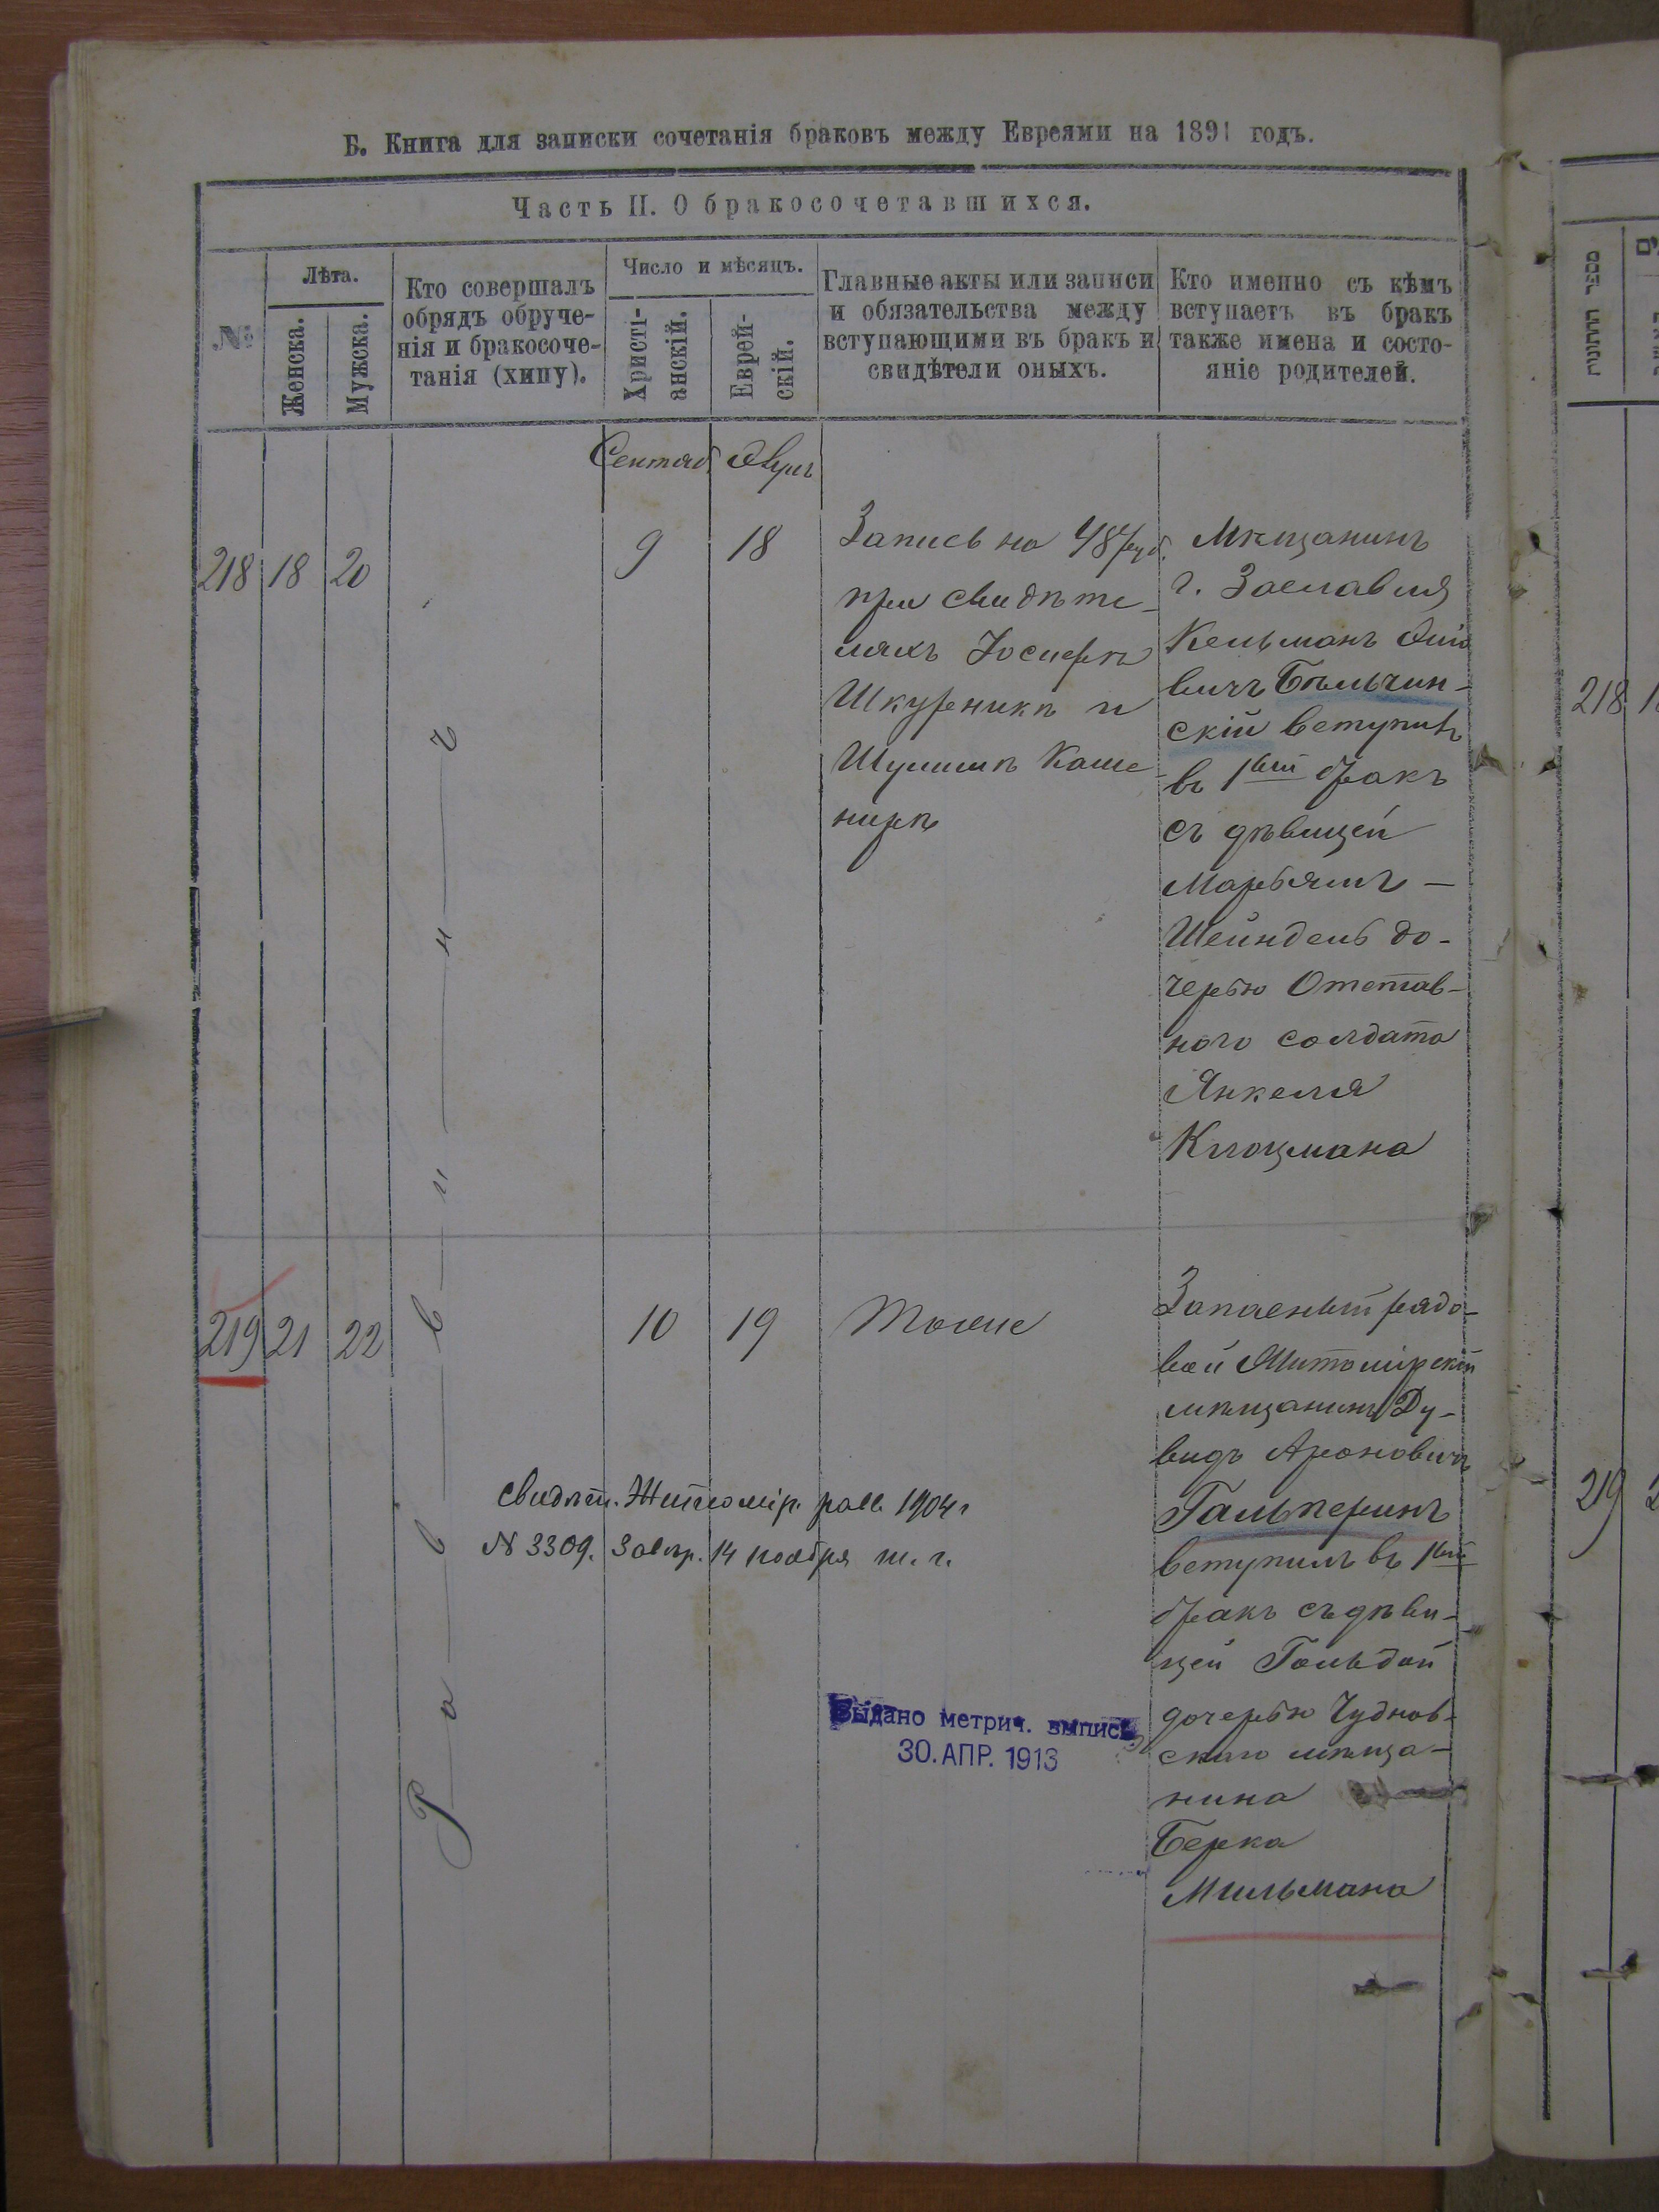 Б. Книга для записки сочетанія браковъ между Евреями на 1891 годъ.
Часть II. О бракосочетавшихся.
№
Лѣта.
Женска.
Мужска.
Кто совершалъ
обрядъ обруче-
нія и бракосоче-
танія (хипу).
Число и мѣсяцъ.
Христі-
анскій.
Еврей-
скій.
Главные акты или записи
и обязательства между
вступающими въ бракъ и
свидѣтели оныхъ.
Кто именно съ кѣмъ
вступаетъ въ бракъ
также имена и состо-
яніе родителей.
Сентяб. Элулъ
218 18 20
Раввинъ
9 18
Запись на 48 руб.
при свидѣте-
ляхъ Іосифѣ
Шкурникѣ и
Шулимѣ Каше-
нирѣ
Мѣщанинъ
г. Заславля
Кельманъ
вичъ Бѣльчин-
скій вступилъ
въ 1вый бракъ
съ дѣвицей
Марьямъ-
Шейндель до-
черью Отстав-
ного солдата
Янкеля
Клоцмана
219 21 22
10 19
Тоже
Запасный рядо-
вой Житомірскій
мѣщанинъ Ду-
видъ Ароновичъ
Гальперинъ
вступилъ въ 1вый
бракъ съ дѣви-
цей Гольдой
дочерью Чуднов-
скаго мѣща-
нина
Берка
Мильмана
Свидѣт. Житомір. равв. 1904 г
N 3309. Завѣр. 14 ноября т. г.
Выдано метрич. выпись
30. АПР. 1913
מספר החתונות
218
219